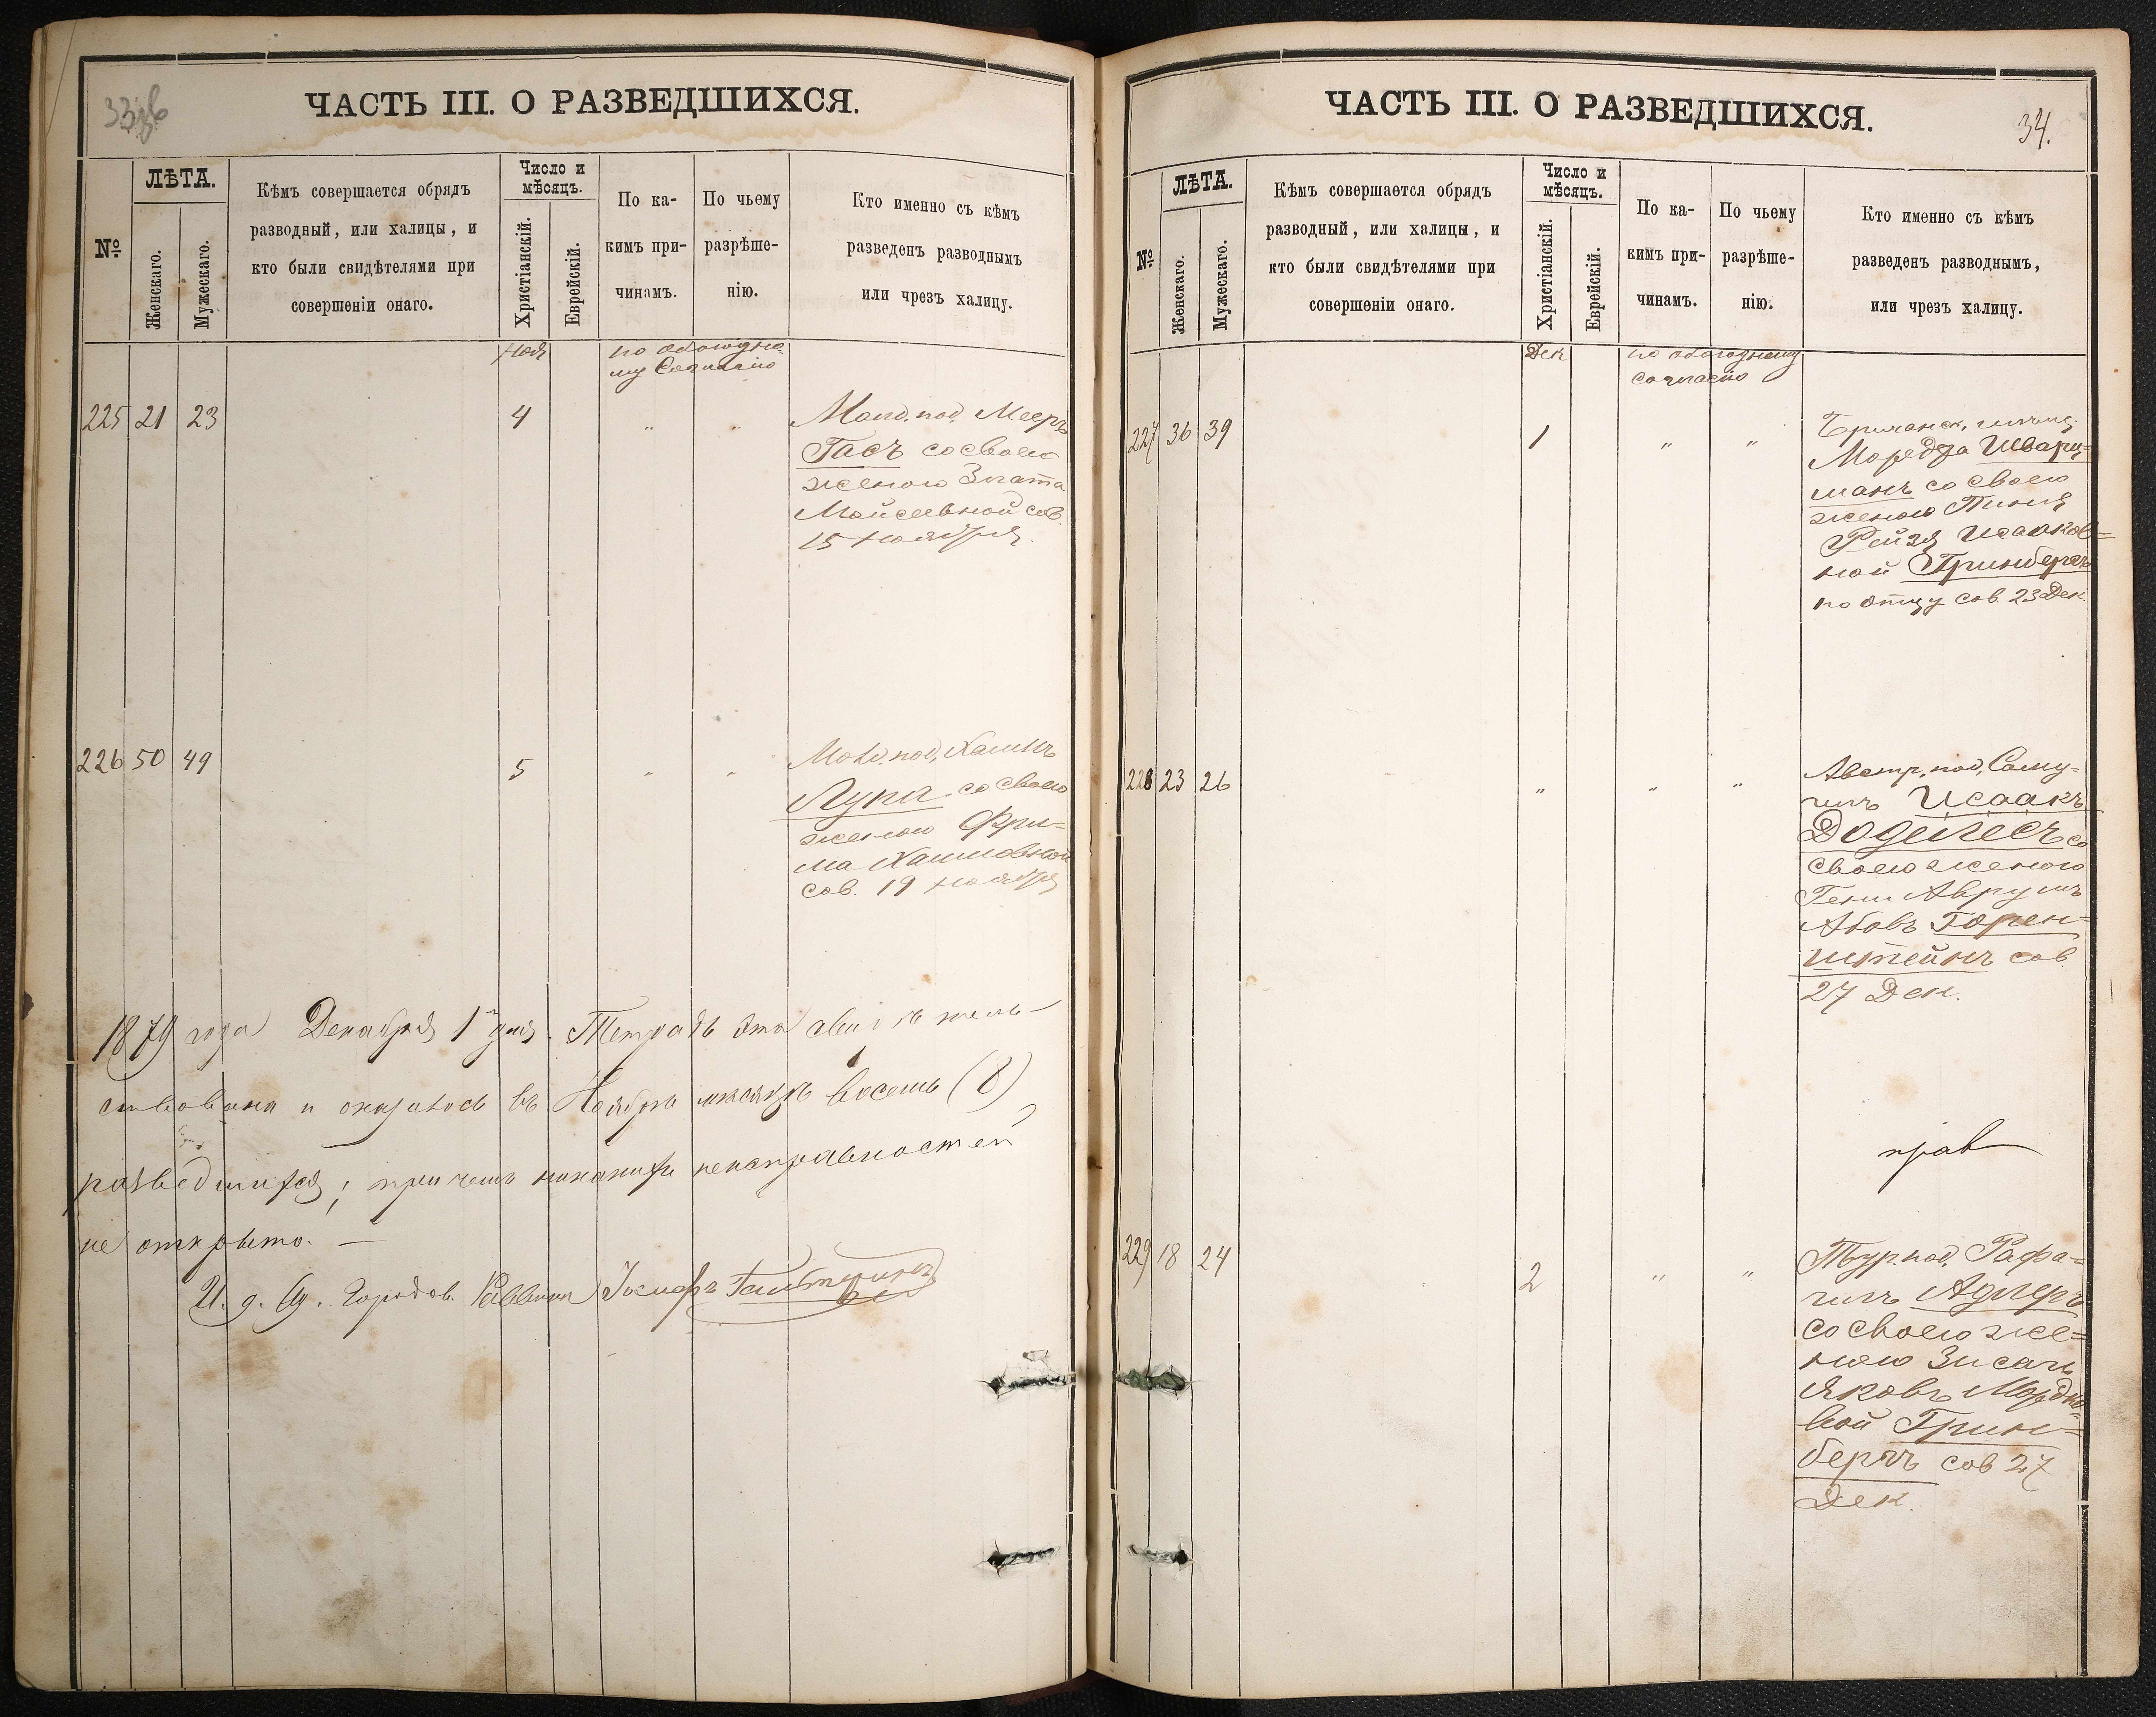 ЧАСТЬ III. О РАЗВЕДШИХСЯ.
№
ЛѢТА.
Женскаго.
Мужескаго.
Кѣмъ совершается обрядъ
разводный, или халицы, и
кто были свидѣтелями при
совершеніи онаго.
Число и
мѣсяцъ.
Христіанскій.
Еврейскій.
По ка-
кимъ при-
чинамъ.
По чьему
разрѣше-
нію.
Кто именно съ кѣмъ
разведенъ разводнымъ
или чрезъ халицу.
Ноя
по обоюдно-
му согласію
225 21 23 4 " "
Молд. под. Мееръ
Гасъ со своею
женою Злата
Мойсеевной сов.
15 Ноября
226 50 49 5 " "
Молд. под. Хаимъ
Лупа со своею
женою Фри-
ма Хаимовной
сов. 19 Ноября
1879 года Декабря 1 дня. Тетрадь эта свидѣтель-
ствована и оказалось въ Ноябрѣ мѣсяцѣ восемь (8)
разведшихся; при чемъ никакихъ неисправностей
не открыто. —
И. д. Од. Городов. Раввина Іосифъ
ЧАСТЬ III. О РАЗВЕДШИХСЯ.
34.
№
ЛѢТА.
Женскаго.
Мужескаго.
Кѣмъ совершается обрядъ
разводный, или халицы, и
кто были свидѣтелями при
совершеніи онаго.
Число и
мѣсяцъ.
Христіанскій.
Еврейскій.
По ка-
кимъ при-
чинамъ.
По чьему
разрѣше-
нію.
Кто именно съ кѣмъ
разведенъ разводнымъ,
или чрезъ халицу.
Дек
по обоюдному
согласію
227 36 39 1 " "
Бричанск.
Моредха Шварц=
манъ со своею
женою
Рейзя Исааков=
ной Гринбергъ
по отцу сов. 23 Дек.
228 23 26 " " "
Австр. под. Саму=
илъ Исаакъ
Додилесъ со
своею женою
Гени Аврумъ
Абовъ Горен=
штейнъ сов.
27 Дек.
прав
229 18 24 2 " "
Тур. под. Рафа=
илъ Адлеръ
со своею же=
ною
Яковъ Мордко=
вой Грин=
бергъ сов 27
Дек.